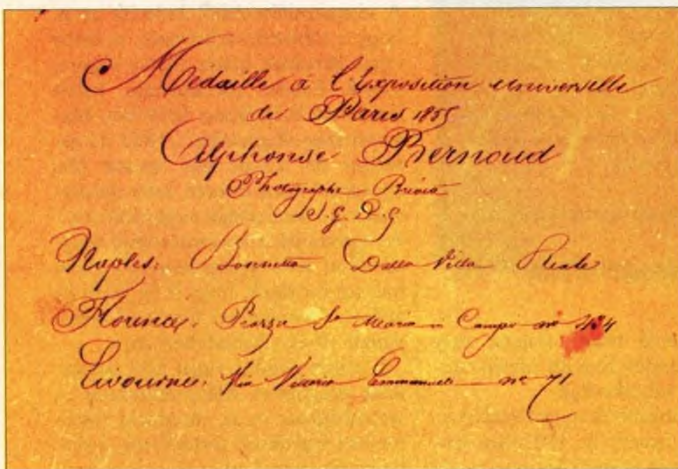 Médaille à l'Exposition universelle
de Paris 1855
Alphonse Bernoud
Photographe Brévété
S.G.D.G
Naples. Della Villa Reale
Florence. Piazza Sta Maria in Campo no 434
Livourne. Via Vittorio Emmanuele no 71